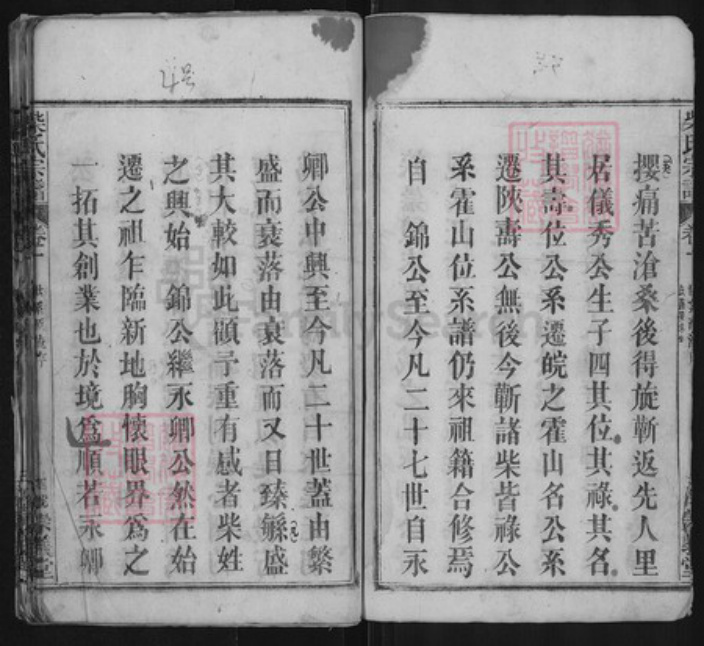 攖痛苦滄桑後得旋蘄返先人里
居儀秀公生子四其位其祿其名
其壽位公系遷皖之霍山名公系
遷陝壽公無後今蘄諸柴皆祿公
系霍山位系譜仍來祖籍合修焉
自 錦公至今凡二十七世自永
卿公中興至今凡二十世蓋由繁
盛而衰落由衰落而又日臻緐盛
其大較如此顧予重有感者柴姓
之興始 錦公繼永卿公然在始
遷之祖乍臨新地胸懷眼界為之
一拓其創業也於境為順若永卿
柴氏宗譜
卷一
柴氏宗譜
卷一
FamilySearch